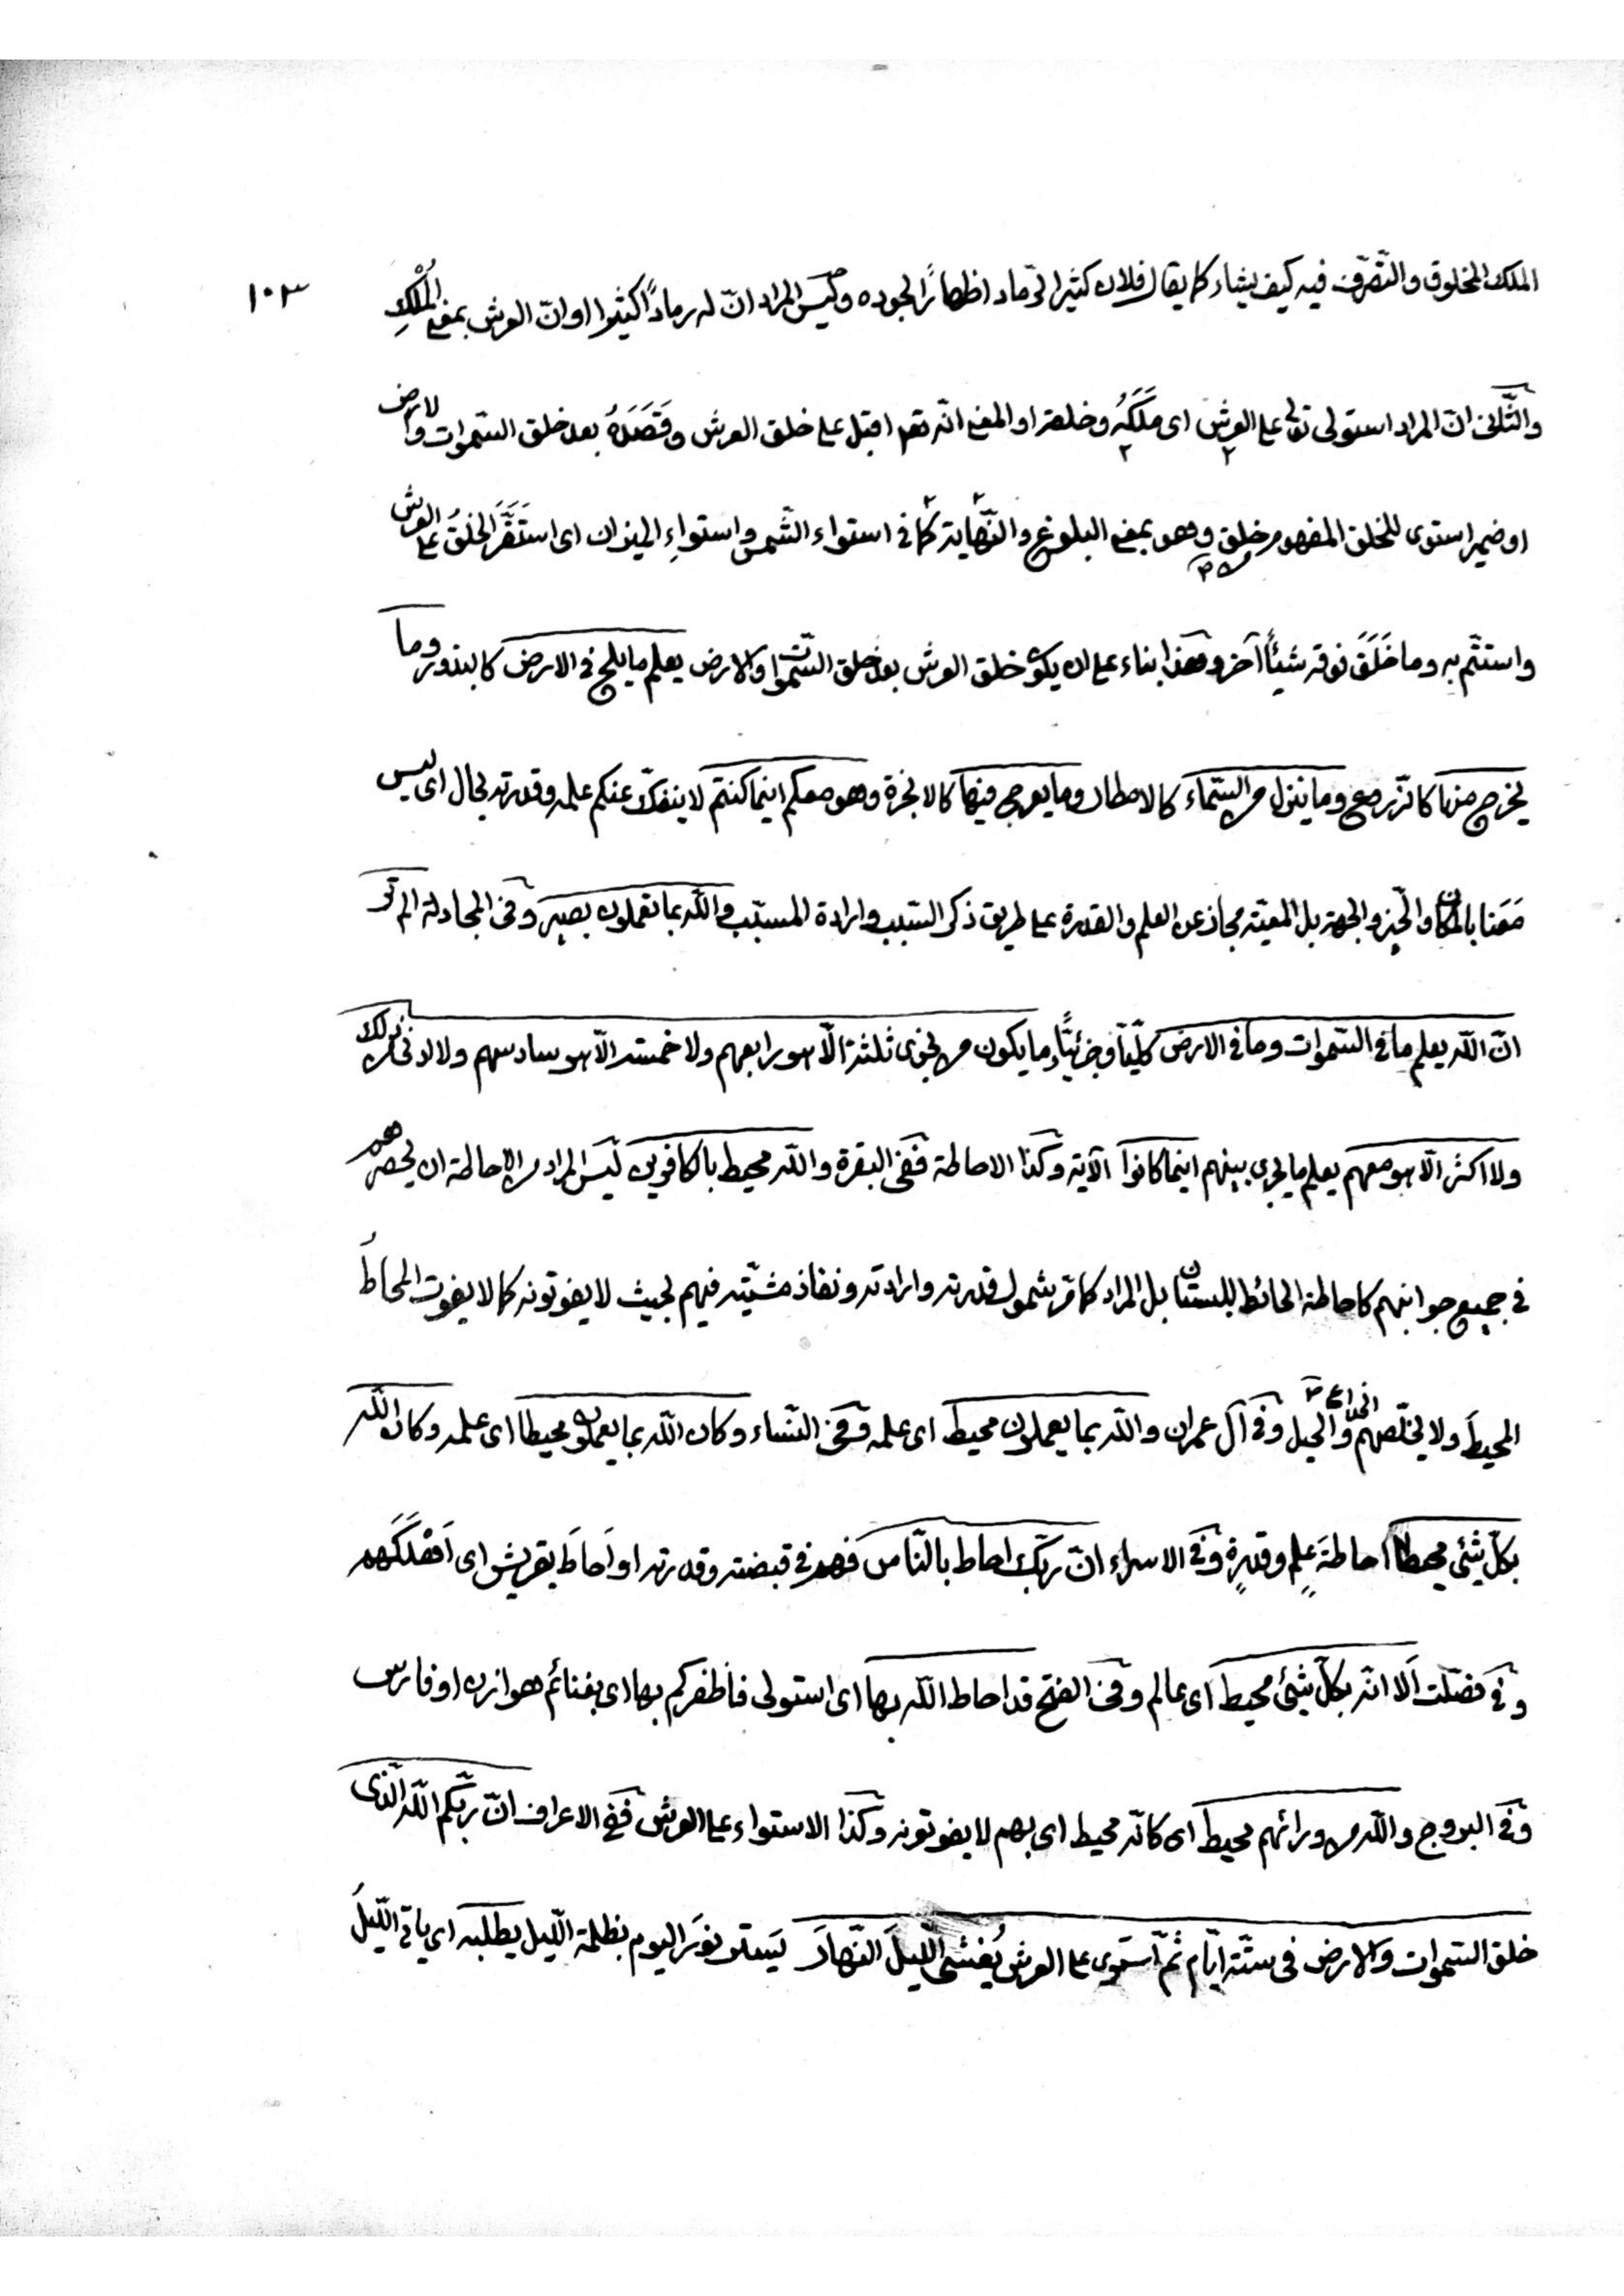 ١٠٣
الملك المخلوق والتّصرّف فيه كيف يشاء كما يقال فلان كثير الرّماد اظهارًا لجوده وليس المراد انّ له رمادًا كثيرا او انّ العرش بمعنى المُلْكِ
والثّانى انّ المراد استولى تعالى على العرش اى مَلَكَهُ وخلقه او المعنى انّه تعالى اقبل على خلق العرش وقَصَدَهُ بعد خلق السّموات والارض
او ضمير استوى للخلق المفهوم من خلق وهو بمعنى البلوغ والنّهاية كما فى استواء الشّمس واستواءِ الميزان اى استَقَرَّ الخلقُ على العرش
واستتمّ به وما خَلَقَ فوقه شيئًا آخر وهذا بناء على ان يكون خلق العرش بعد خلق السّموات والارض يعلم ما يلج فى الارض كالبذور وما
يخرج منها كالزّروع وما ينزل من السّماء كالامطار وما يعرج فيها كالابخرة وهو معكم اينما كنتم لا ينفكّ عنكم علمه وقدرته بحال اى ليس
مَعَنا بالمكان والحيّز والجهة بل المعيّة مجاز عن العلم والقدرة على طريق ذكر السّبب وارادة المسبّب والله بما تعملون بصير وفى المجادلة الم تر
انّ الله يعلم ما فى السّموات وما فى الارض كلّيّاً وجزئيّاً ما يكون من نجوى ثلثة الّا هو رابعهم ولا خمسة الّا هو سادسهم ولا ادنى من ذلك
ولا اكثر الّا هو معهم يعلم ما يجرى بينهم اينما كانوا الآية وكذا الاحاطة ففى البقرة والله محيط بالكافرين ليس المراد من الاحاطة ان يحصرهم
فى جميع جوانبهم كاحاطة الحائط للبستان بل المراد كما مرّ شمول قدرته وارادته ونفاذ مشيّته فيهم بحيث لا يفوتونه كما لا يفوت المحاطُ
المحيطَ ولا يخلّصهم الخداع والحيل وفى آل عمران والله بما يعملون محيط اى علمه وفى النّساء وكان الله بما يعملون محيطا اى علمه وكان الله
بكلّ شئى محيطا احاطةَ علمٍ وقدرةٍ وفى الاسراء انّ ربّك احاط بالنّاس فهم فى قبضته وقدرته او اَحاطَ بقريش اى اَهْلَكَهم
وفى فصّلت اَلا انّه بكلّ شئى محيط اى عالم وفى الفتح قد احاط الله بها اى استولى فاظفركم بها اى بغنائم هوازن او فارس
وفى البروج والله من ورائهم محيط اى كانّه محيط اى بهم لا يفوتونه وكذا الاستواء على العرش ففى الاعراف انّ ربّكم الله الّذى
خلق السّموات والارض فى ستّة ايّام ثمّ استوى على العرش يُغشى اللّيلَ النّهارَ يستر نورَ اليوم بظلمة اللّيل يطلبه اى ياتى اللّيلُ